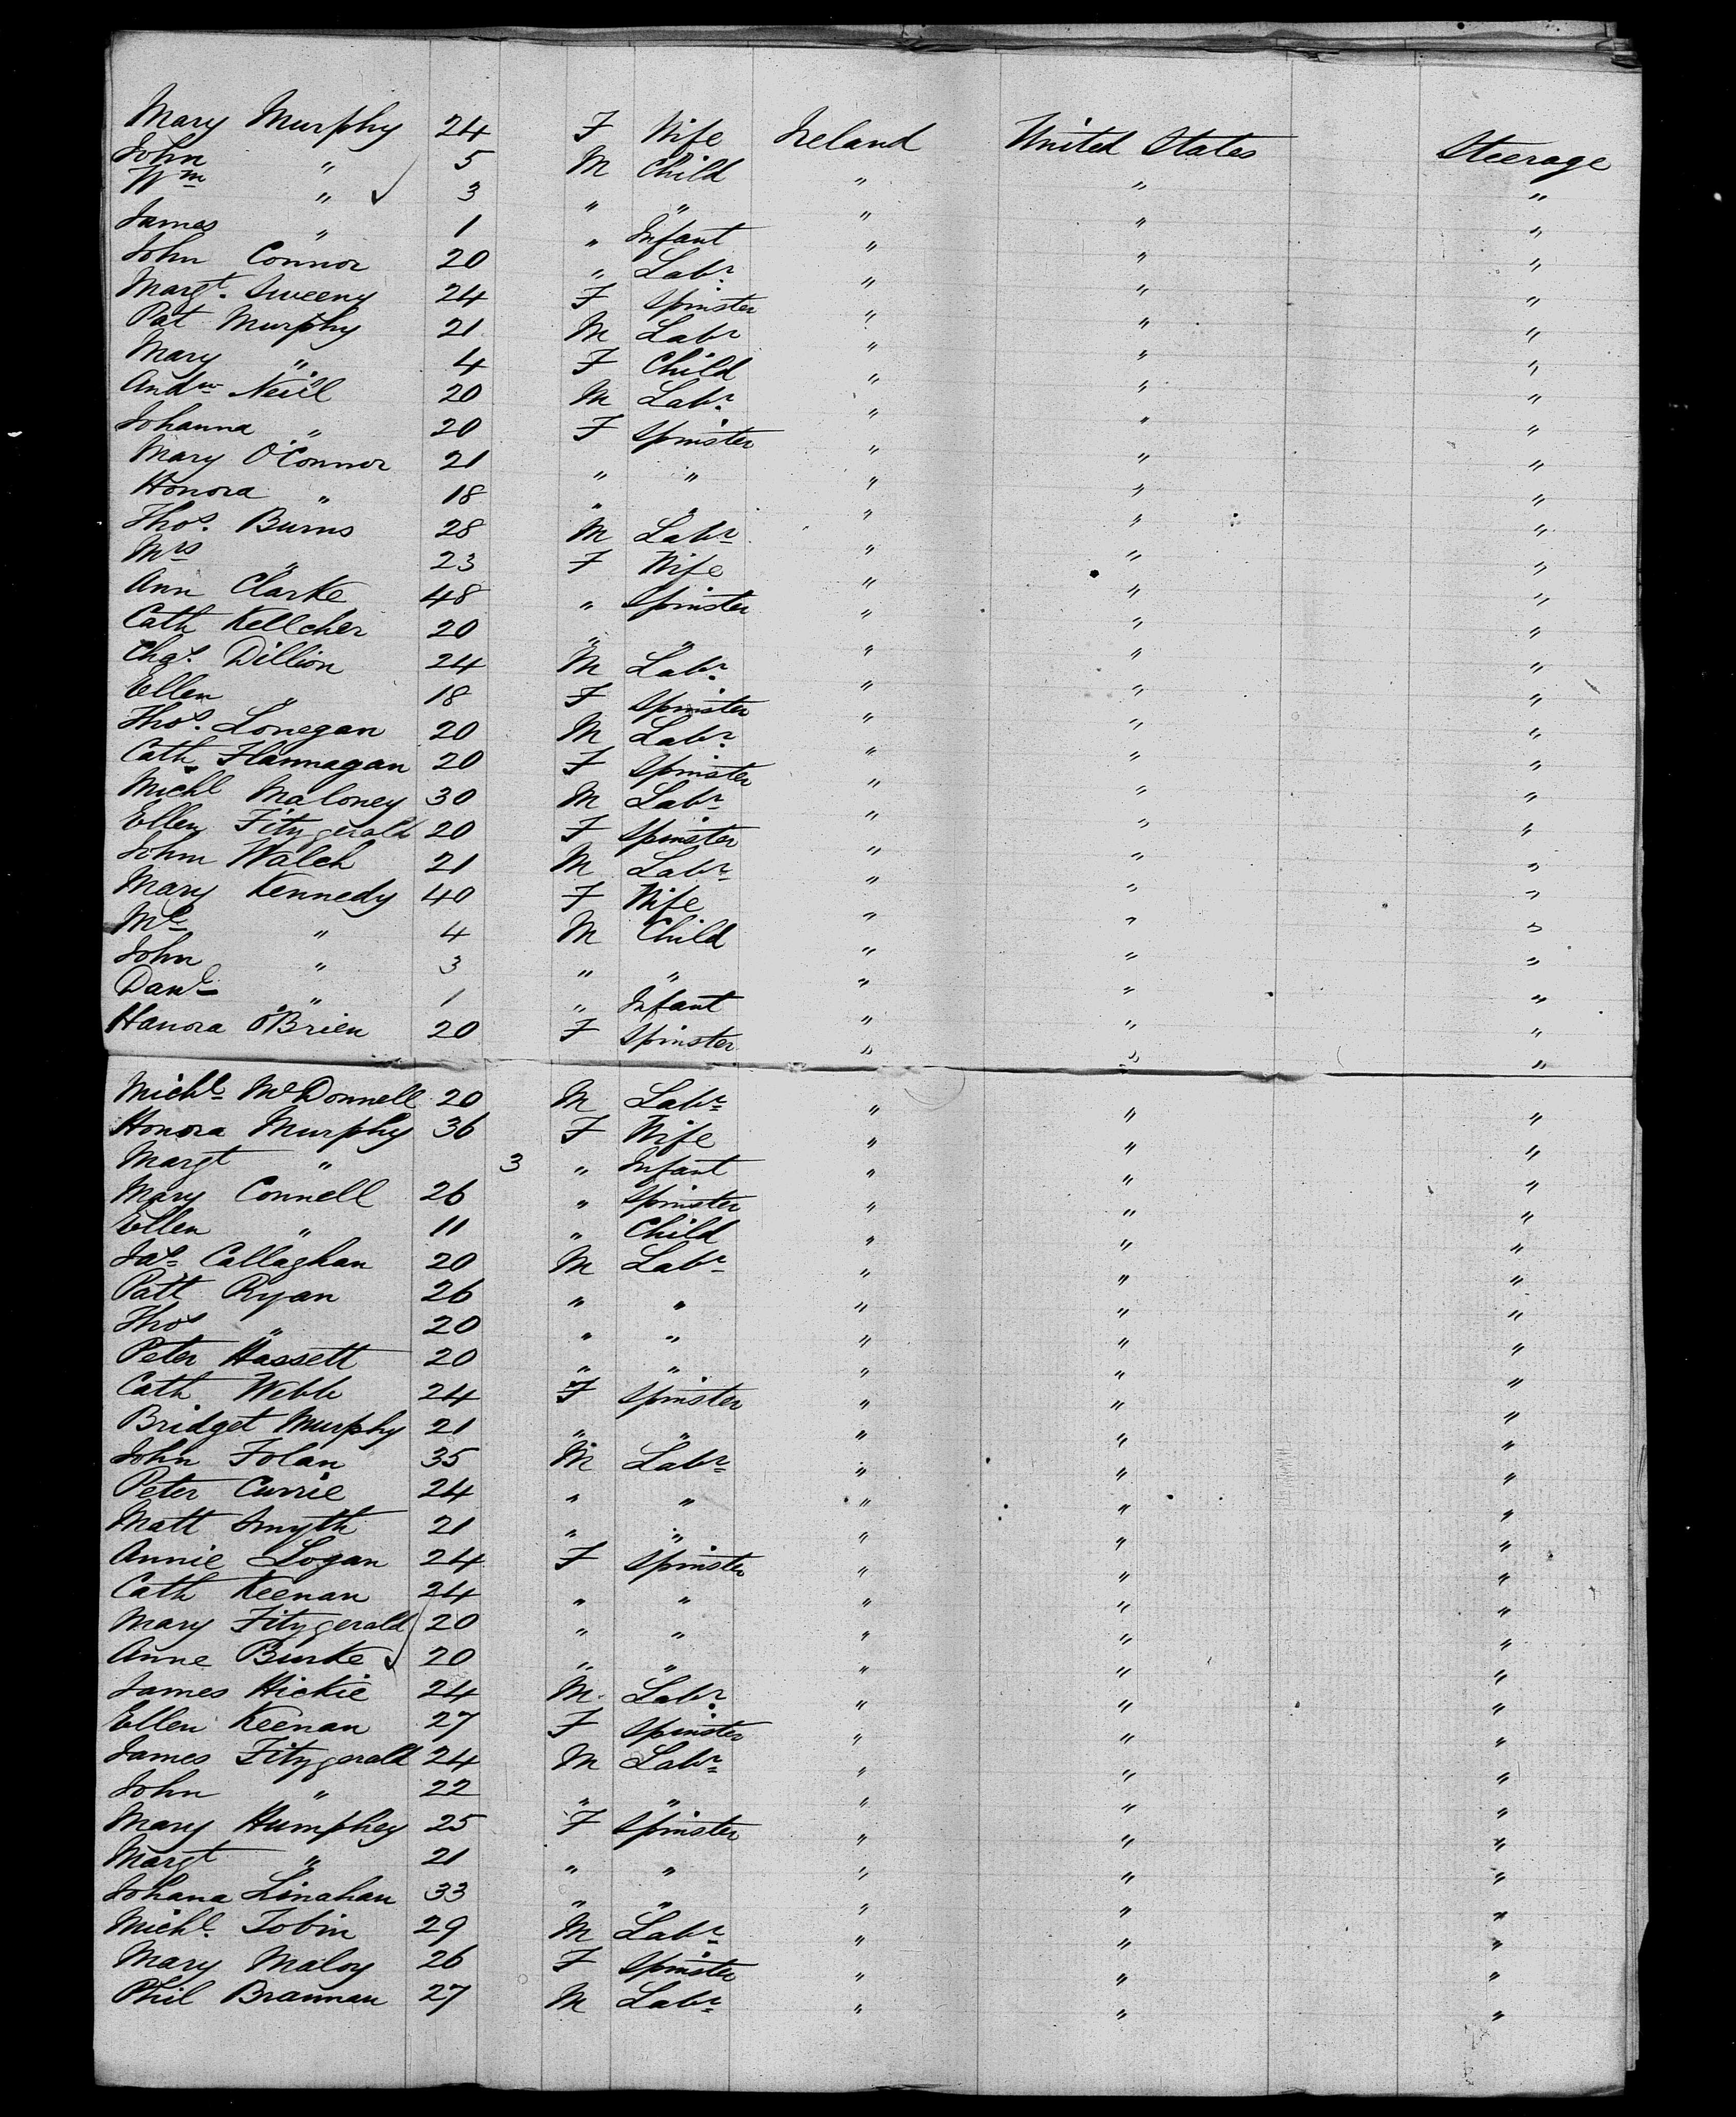 Mary Murphy 24 F Wife Ireland United States Steerage
John " 5 M Child " " "
Wm " 3 " " " " "
James " 1 " Infant " " "
John Connor 20 " Labr " " "
Margt. Sweeny 24 F Spinster " " "
Pat Murphy 21 M Labr " " "
Mary " 4 F Child " " "
Andw Neill 20 M Labr " " "
Johanna " 20 F Spinster " " "
Mary O'Connor 21 " " " " "
Honora " 18 " " " " "
Thos. Burns 28 M Labr " " "
Mrs " 23 F Wife " " "
Ann Clarke 48 " Spinster " " "
Cath Kellcher 20 " " " " "
Chas. Dillion 24 M Labr " " "
Ellen " 18 F Spinster " " "
Thos. Lonegan 20 M Labr " " "
Cath Flannagan 20 F Spinster " " "
Michl Maloney 30 M Labr " " "
Ellen Fitzgerald 20 F Spinster " " "
John Walch 21 M Labr " " "
Mary Kennedy 40 F Wife " " "
Ml " 4 M Child " " "
John " 3 " " " " "
Danl " 1 " Infant " " "
Hanora O'Brien 20 F Spinster " " "
Michl McDonnell 20 M Labr " " "
Honora Murphy 36 F Wife " " "
Margt " 3 " Infant " " "
Mary Connell 26 " Spinster " " "
Ellen " 11 " Child " " "
Jas Callaghan 20 M Labr " " "
Patt Ryan 26 " " " " "
Thos " 20 " " " " "
Peter Hassett 20 " " " " "
Cath Webb 24 F Spinster " " "
Bridget Murphy 21 " " " " "
John Folan 35 M Labr " " "
Peter Currie 24 " " " " "
Matt Smyth 21 " " " " "
Annie Logan 24 F Spinster " " "
Cath Keenan 24 " " " " "
Mary Fitzgerald 20 " " " " "
Anne Burke 20 " " " " "
James Hickie 24 M Labr " " "
Ellen Keenan 27 F Spinster " " "
James Fitzgerald 24 M Labr " " "
John " 22 " " " " "
Mary Humphey 25 F Spinster " " "
Margt " 21 " " " " "
Johana Linahan 33 " " " " "
Michl. Tobin 29 M Labr " " "
Mary Maloy 26 F Spinster " " "
Phil Brannan 27 M Labr " " "